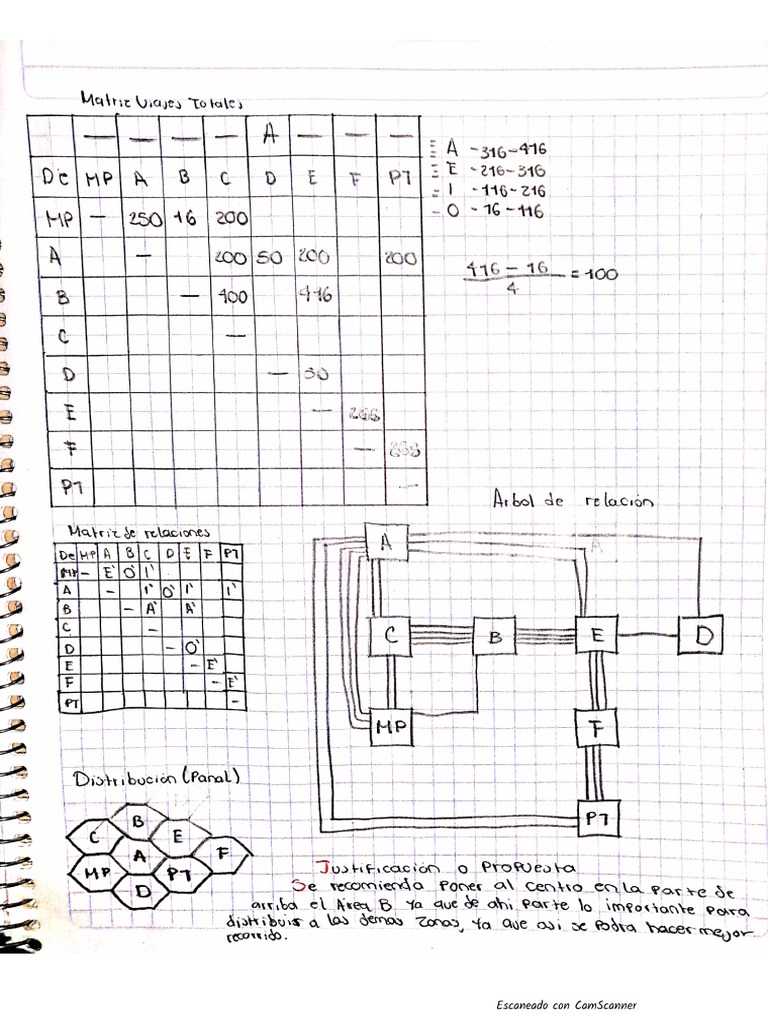 Matriz Viajes Totales
— — — — A — — —
De MP A B C D E F PT
MP — 250 16 200
A — 200 50 200 200
B — 400 416
C —
D —
E —
F —
PT —
A - 316 - 416
E - 216 - 316
I - 116 - 216
O - 16 - 116
416 - 16
4
= 100
Arbol de relación
A
C B E D
MP F
PT
Matriz de relaciones
De MP A B C D E F PT
MP - E' O' I'
A - I' O' I' I'
B - A' A'
C -
D - O'
E - E'
F - E'
PT -
Distribución (Panal)
B
C E
A F
MP PT
D
Justificación o Propuesta
Se recomienda poner al centro en la parte de
arriba el Area B ya que de ahi parte lo importante para
distribuir a las demas zonas, ya que asi se podra hacer mejor
recorrido.
Escaneado con CamScanner